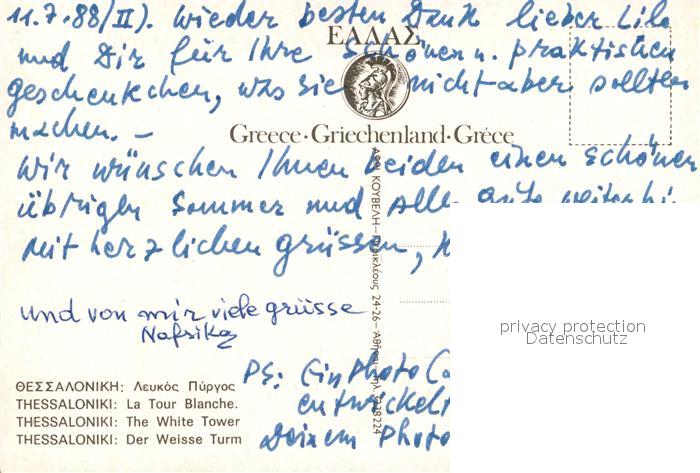 11.7.88/II). Wieder besten Dank lieber Lila
und Dir für Ihre schönen u. praktischen
ΕΛΛΑΣ
geschenkchen, was Sie nicht aber sollten
machen. –
Greece·Griechenland·Grèce
Wir wünschen Ihnen beiden einen schönen
übrigen Sommer und alles gute weiterhi
mit herzlichen grüssen,
und von mir viele grüsse
Nafsika
ΑΦΟΙ ΚΟΥΒΕΛΗ – Περικλέους 24-26 – Αθήναι
privacy protection
Datenschutz
PS: Ein Photo
entwickelt
Deinem Photo
ΘΕΣΣΑΛΟΝΙΚΗ: Λευκός Πύργος
THESSALONIKI: La Tour Blanche.
THESSALONIKI: The White Tower
THESSALONIKI: Der Weisse Turm